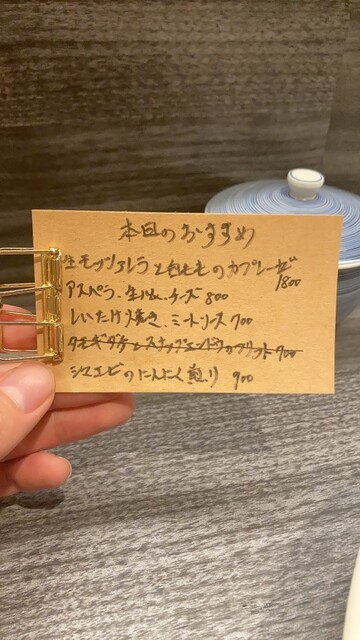 本日のおすすめ
生モッツァレラと白ももの カプレーゼ
1800
アスペラ、生ハム、チーズ 800
しいたけ焼き、ミートソース 700
タモギダケとスナップエンドウのフリット 700
シマエビのにんにく煎り 900